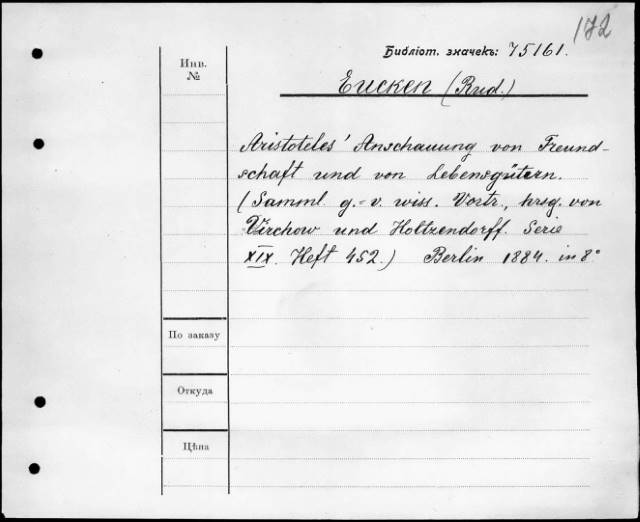 172
Библіот. значекъ: 75161.
Инв.
№
Eucken (Rud.)
Aristoteles' Anschauung von Freund-
schaft und von Lebensgütern.
(Samml. g.-v. wiss. Vortr., hrsg. von
Virchow und Holtzendorff. Serie
XIX. Heft 452.) Berlin 1884. in 8°
По заказу
Откуда
Цѣна